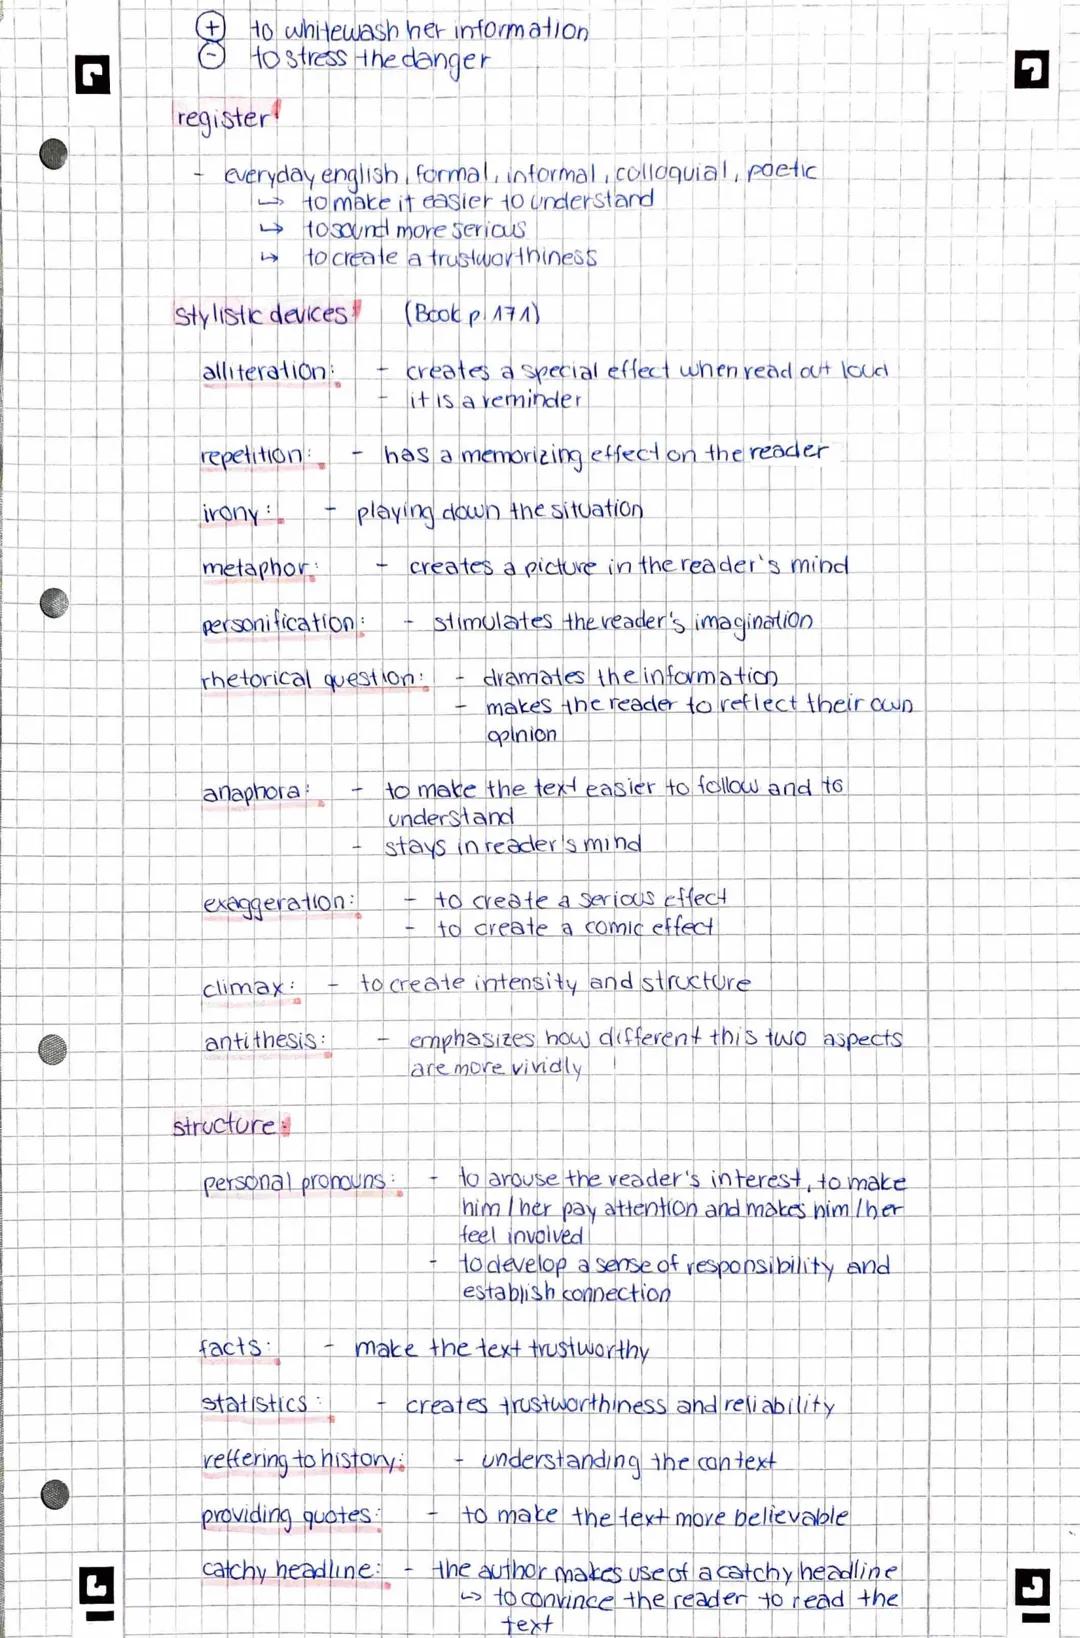 + to whitewash her information
- to stress the danger
register!
- everyday english, formal, informal, colloquial, poetic
↳ to make it easier to understand
↳ to sound more serious
↳ to create a trustworthiness
stylistic devices! (Book p. 171)
alliteration: - creates a special effect when read out loud
- it is a reminder
repetition: - has a memorizing effect on the reader
irony: - playing down the situation
metaphor: - creates a picture in the reader's mind
personification: - stimulates the reader's imagination
rhetorical question: - dramates the information
- makes the reader to reflect their own
opinion
anaphora: - to make the text easier to follow and to
understand
- stays in reader's mind
exaggeration: - to create a serious effect
- to create a comic effect
climax: - to create intensity and structure
antithesis: - emphasizes how different this two aspects
are more vividly
structure:
personal pronouns: - to arouse the reader's interest, to make
him/her pay attention and makes him/her
feel involved
- to develop a sense of responsibility and
establish connection
facts: - make the text trustworthy
statistics: - creates trustworthiness and reliability
reffering to history: - understanding the context
providing quotes: - to make the text more believable
catchy headline: - the author makes use of a catchy headline
↳ to convince the reader to read the
text